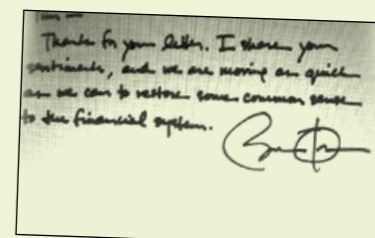 Thanks for your letter. I share your
sentiments, and we are moving as quick
as we can to restore some common sense
to the financial system.